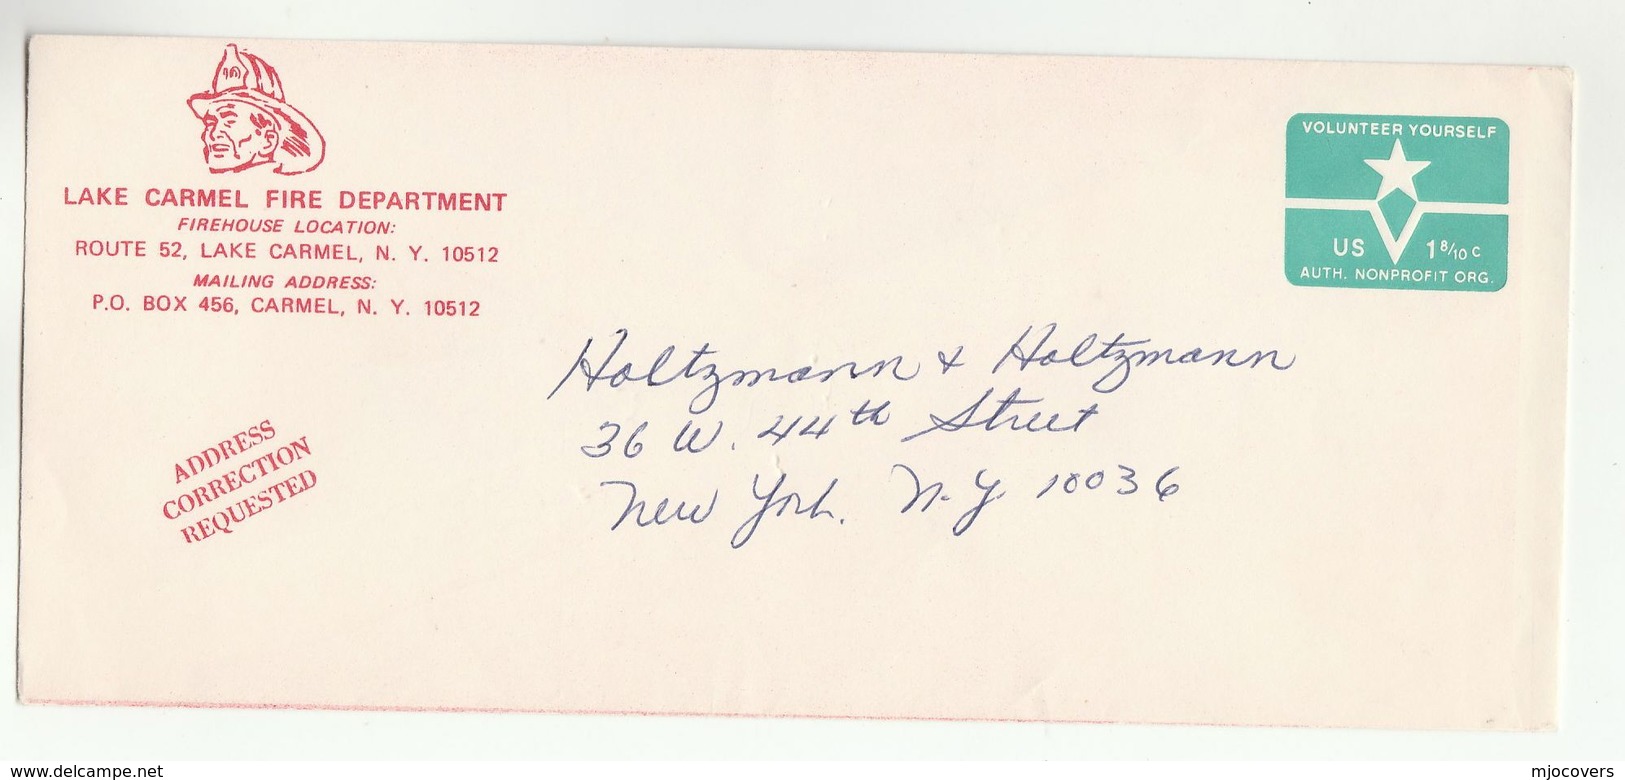 LAKE CARMEL FIRE DEPARTMENT
FIREHOUSE LOCATION:
ROUTE 52, LAKE CARMEL, N. Y. 10512
MAILING ADDRESS:
P.O. BOX 456, CARMEL, N. Y. 10512
VOLUNTEER YOURSELF
US 1 8/10 c
AUTH. NONPROFIT ORG.
Holtzmann & Holtzmann
36 W. 44th Street
New York. N.Y. 10036
ADDRESS
CORRECTION
REQUESTED
delcampe.net
mjocovers